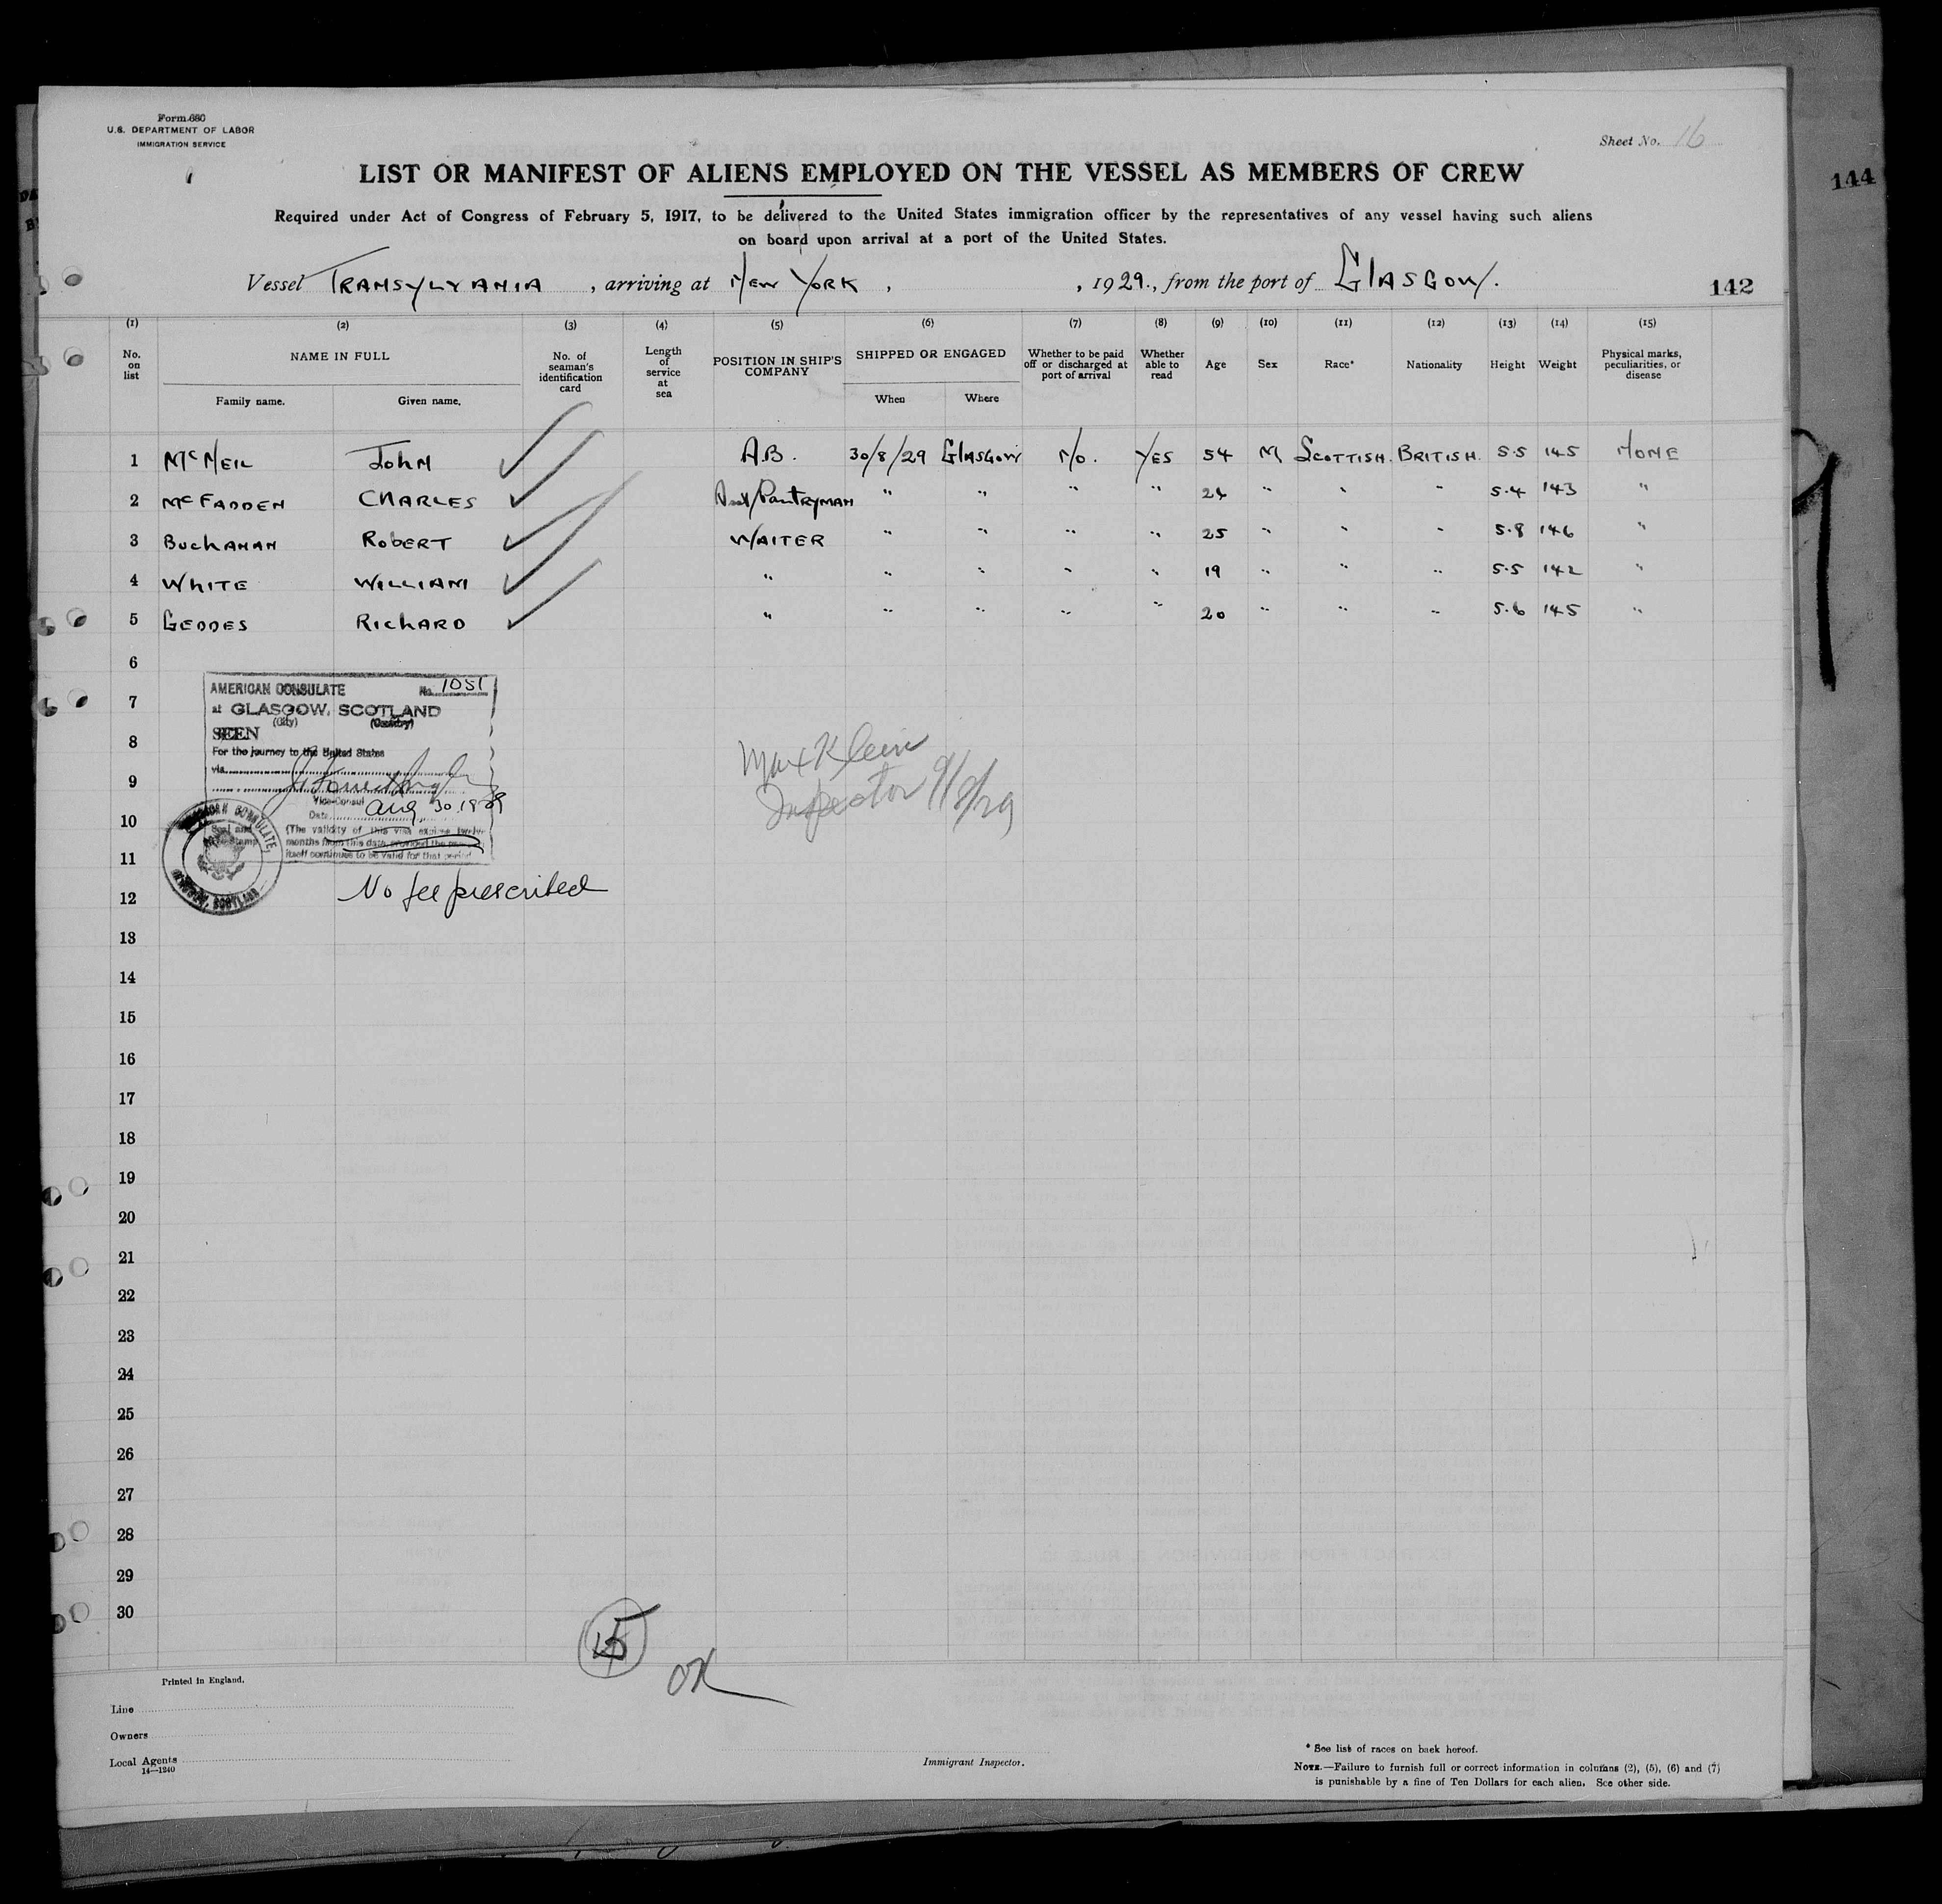 Form 680
U.S. DEPARTMENT OF LABOR
IMMIGRATION SERVICE
Sheet No. 16
LIST OR MANIFEST OF ALIENS EMPLOYED ON THE VESSEL AS MEMBERS OF CREW
144
Required under Act of Congress of February 5, 1917, to be delivered to the United States immigration officer by the representatives of any vessel having such aliens
on board upon arrival at a port of the United States.
Vessel TRANSYLVANIA, arriving at NEW YORK, , 1929., from the port of GLASGOW.
142
(1) (2) (3) (4) (5) (6) (7) (8) (9) (10) (11) (12) (13) (14) (15)
No. on list NAME IN FULL Family name. Given name. No. of seaman's identification card Length of service at sea POSITION IN SHIP'S COMPANY SHIPPED OR ENGAGED When Where Whether to be paid off or discharged at port of arrival Whether able to read Age Sex Race* Nationality Height Weight Physical marks, peculiarities, or disease
1 McNEIL JOHN A.B. 30/8/29 GLASGOW NO. YES 54 M SCOTTISH. BRITISH. 5.5 145 NONE
2 McFADDEN CHARLES /PANTRYMAN " " " " " " " 5.4 143 "
3 BUCHANAN ROBERT WAITER " " " " 25 " " " 5.8 146 "
4 WHITE WILLIAM " " " " " 19 " " " 5.5 142 "
5 GEDDES RICHARD " " " " " 20 " " " 5.6 145 "
6
7
8
9
10
11
12
13
14
15
16
17
18
19
20
21
22
23
24
25
26
27
28
29
30
AMERICAN CONSULATE No. 1051
at GLASGOW, SCOTLAND
(City) (Country)
SEEN
For the journey to the United States
via
Vice-Consul
Date Aug 30.1929
(The validity of this visa expires twelve
months from this date, provided the
itself continues to be valid for that period.
Seal and
Stamp
AMERICAN CONSULATE,
GLASGOW, SCOTLAND
No fee prescribed
Max Klein
Inspector 9/8/29
5
OK
Printed in England.
Line
Owners
Local Agents
14—1240
Immigrant Inspector.
* See list of races on back hereof.
NOTE.—Failure to furnish full or correct information in columns (2), (5), (6) and (7)
is punishable by a fine of Ten Dollars for each alien. See other side.